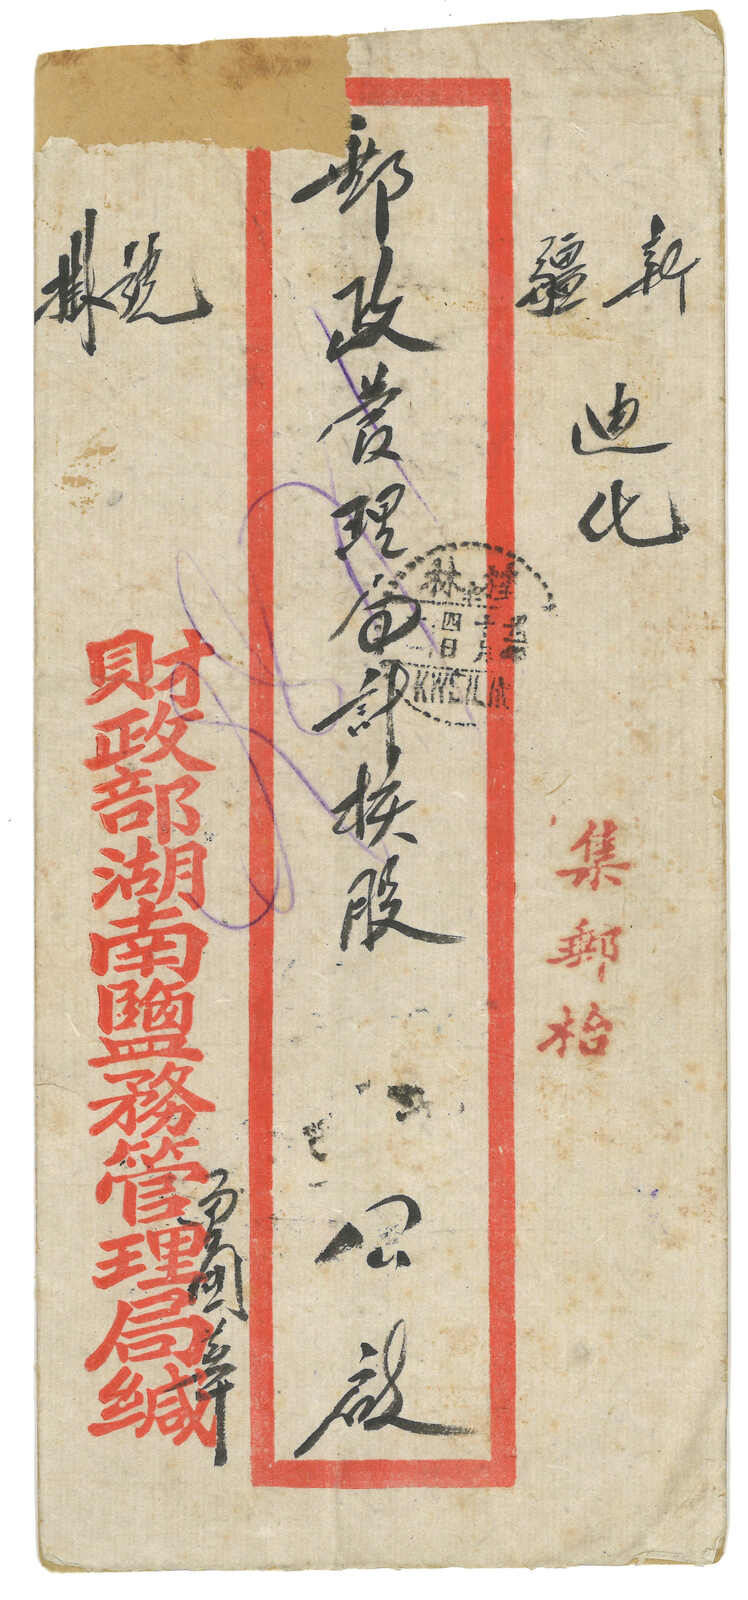 新疆
迪化
集郵枱
郵政管理局計核股 公啟
桂林
KWEILIN
掛號
財政部湖南鹽務管理局緘